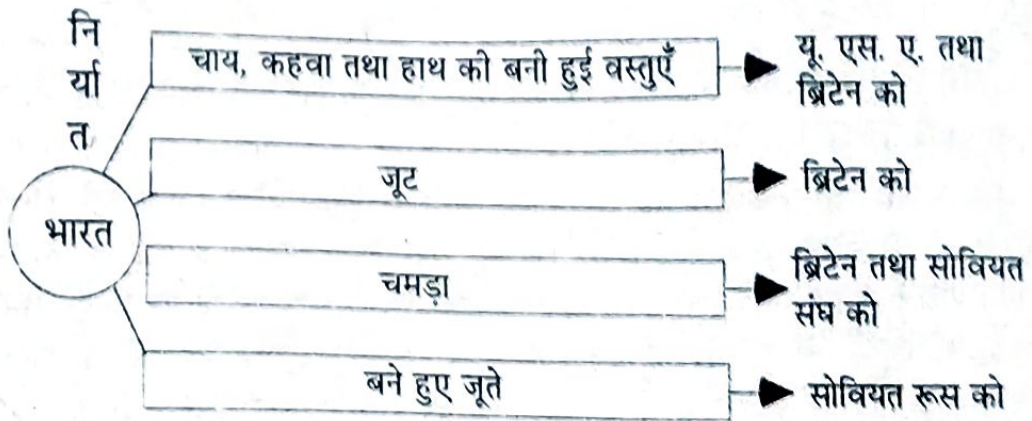 नि
र्या
त
भारत
चाय, कहवा तथा हाथ की बनी हुई वस्तुएँ
यू. एस. ए. तथा
ब्रिटेन को
जूट
ब्रिटेन को
चमड़ा
ब्रिटेन तथा सोवियत
संघ को
बने हुए जूते
सोवियत रूस को